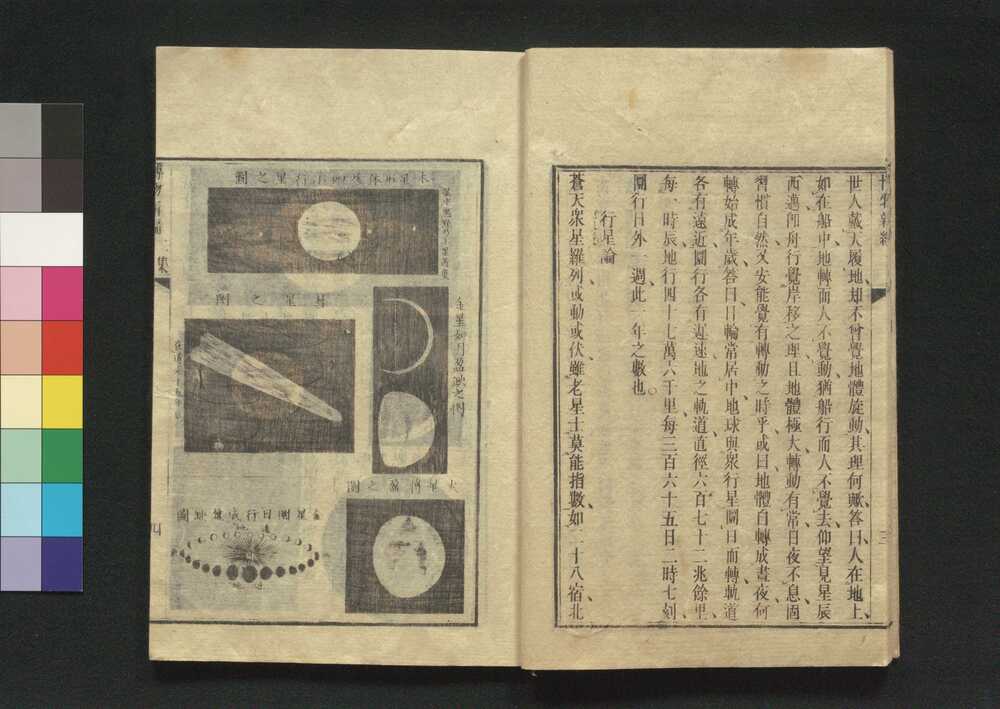 世人戴天履地却不曾覺地體旋動其理何歟答曰人在地上
如在船中地轉而人不覺動猶船行而人不覺去仰望見星辰
西邁卽舟行覺岸移之理且地體極大轉動有常日夜不息固
習慣自然又安能覺有轉動之時乎或曰地體自轉成晝夜何
轉始成年歲答曰日輪常居中地球與衆行星圜日而轉軌道
各有遠近圜行各有遲速地之軌道直徑六百七十二兆餘里
每一時辰地行四十七萬六千里每三百六十五日二時七刻
圜行日外一週此一年之數也
行星論
蒼天衆星羅列或動或伏雖老星士莫能指數如二十八宿北
三
行星之圖
星之圖
金星如月盈缺之圖
火星
之圖
集
四